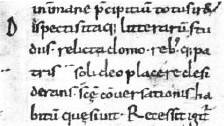 inmane p̄cipitium totus ir&
Dispectis itaq; litterarum stu
diis relicta domo reb;q; pa
tris soli deo placere desi
derans scē conuersationis ha
bitum quesiuit. Recessit igit